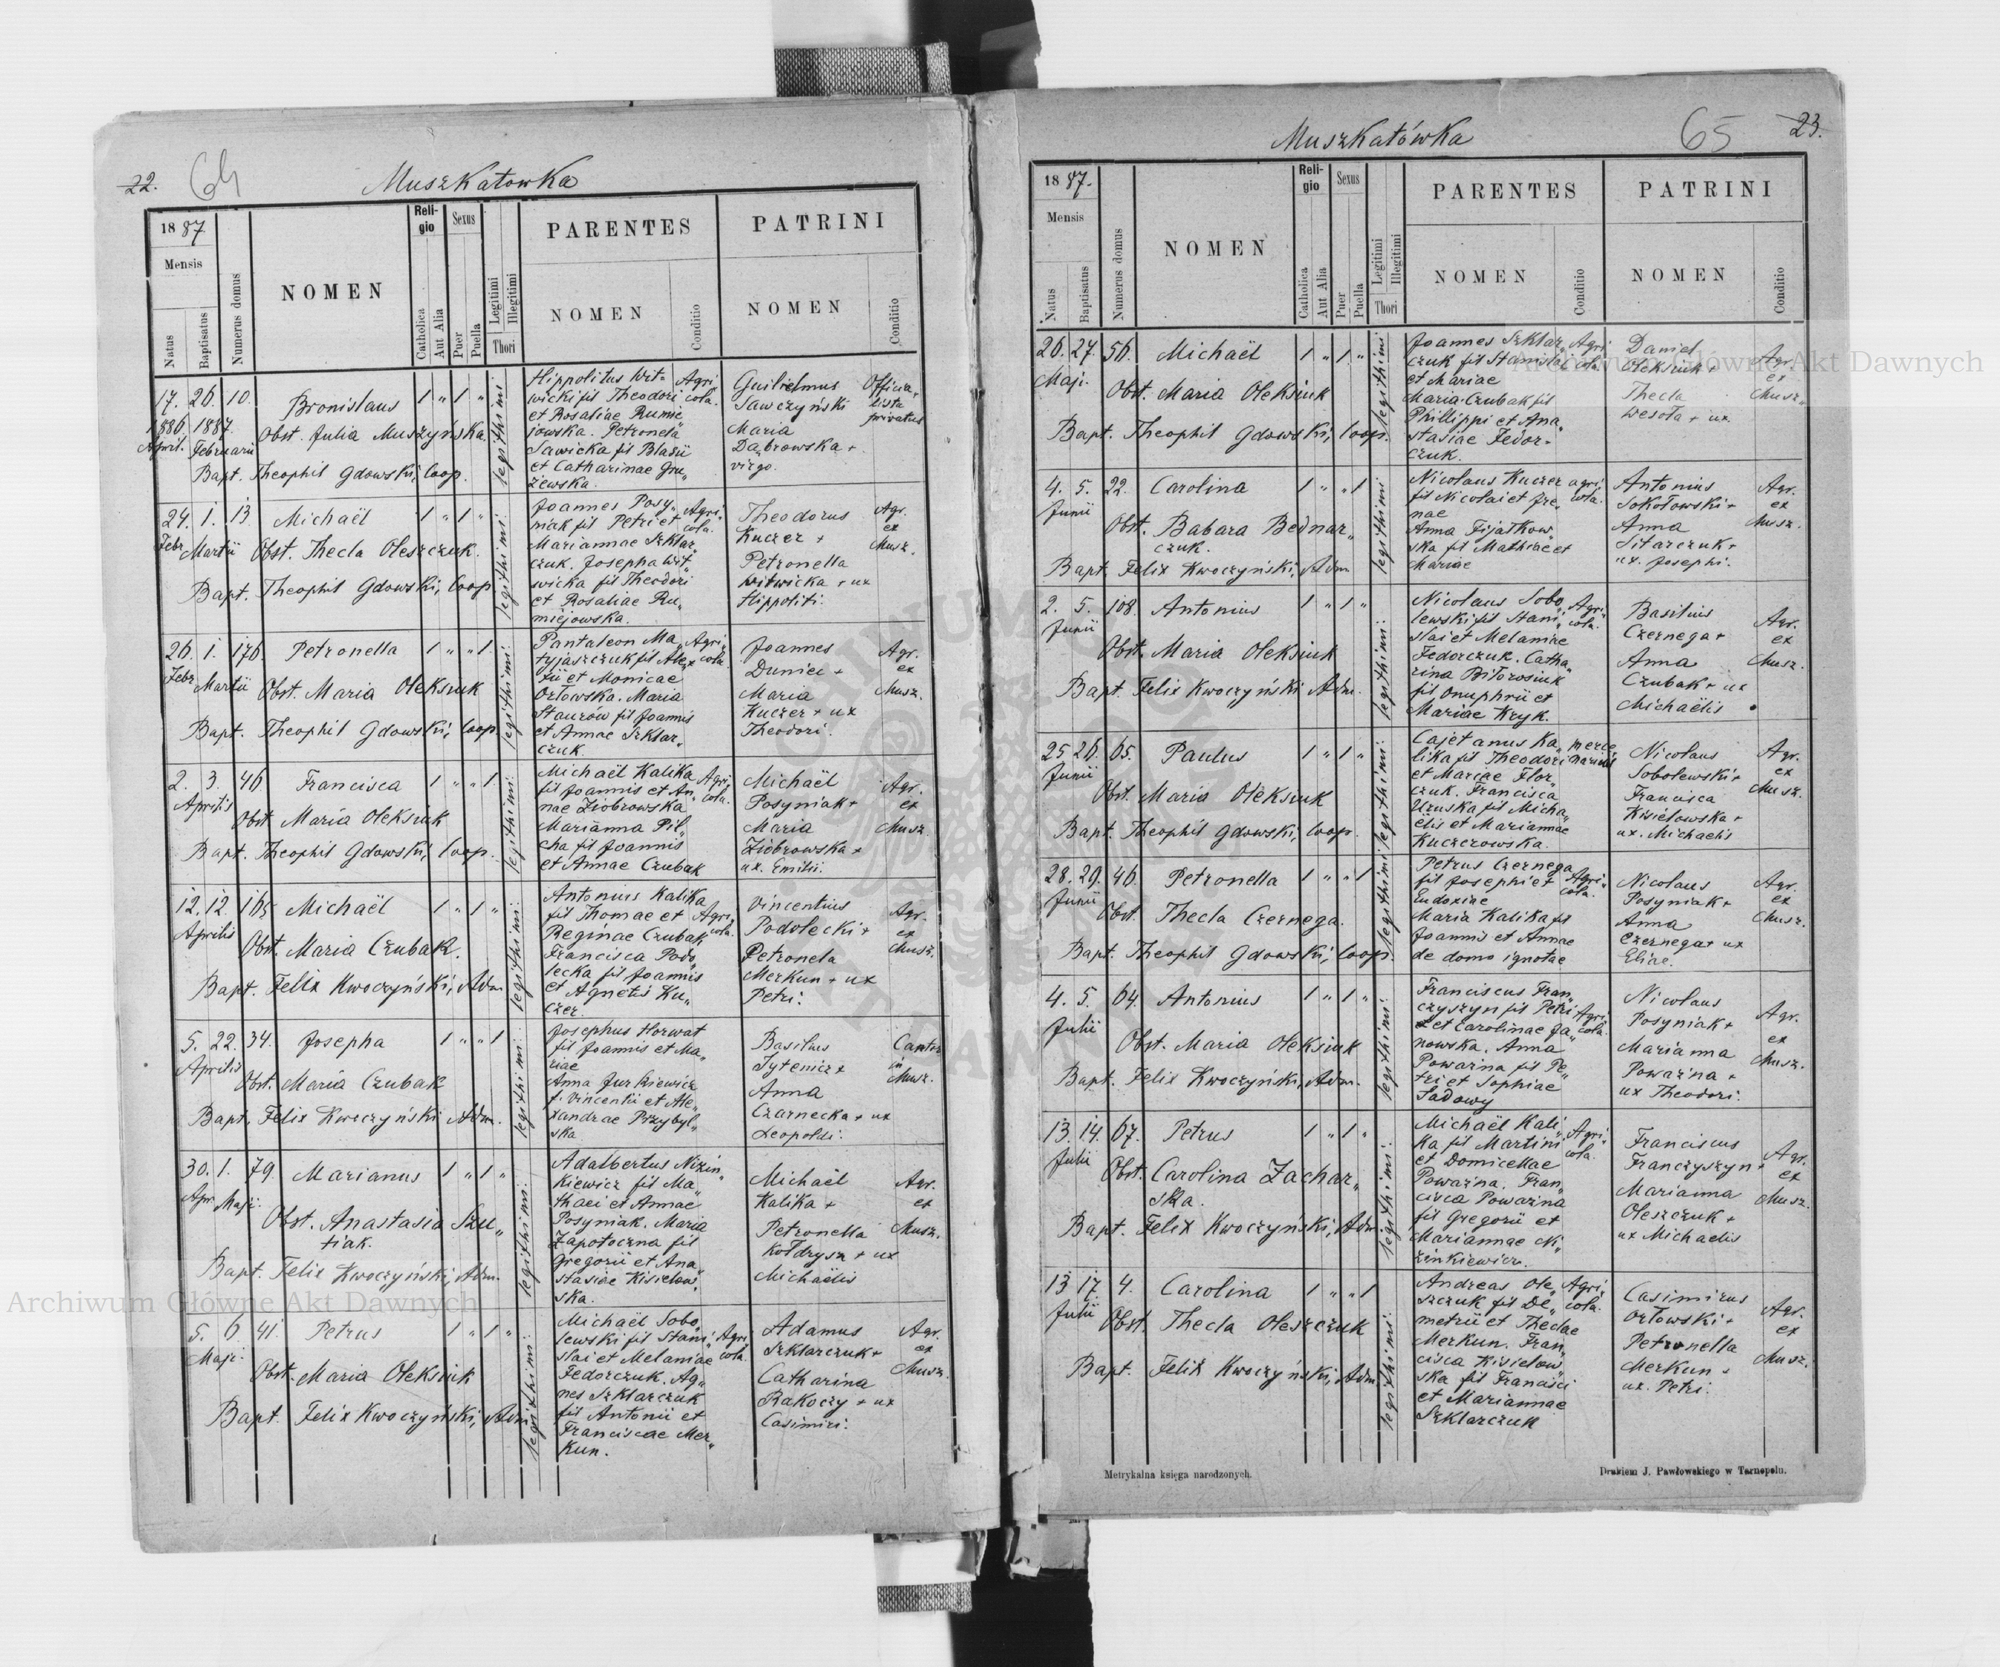 22. 64 Muszkatowka
1887
Mensis
Natus
Baptisatus
Numerus domus
NOMEN
Religio
Catholica
Aut Alia
Sexus
Puer
Puella
Legitimi
Illegitimi
Thori
PARENTES
NOMEN
Conditio
PATRINI
NOMEN
Conditio
17. 26. 10. Bronislaus 1 „ 1 „
1886 1887.
April. Februarii Obst. Julia Muszyńska
Bapt. Theophil Gdowski, Coop.
legithimi
Hippolitus Wit-
wicki fil Theodori
et Rosaliae Rumie
jowska. Petronela
Sawicka fil Blasii
et Catharinae Gru„
żewska.
Agri
cola.
Guilielmus
Sawczyński
Maria
Dąbrowska +
virgo.
Officia„
lista
privatus
24. 1. 13 Michaël 1 „ 1 „
Febr. Martii Obst. Thecla Oleszczuk.
Bapt. Theophil Gdowski, Coop.
legithimi
Joannes Posy„
niak fil Petri et
Mariannae Szklar„
czuk. Josepha Wit„
wicka fil Theodori
et Rosaliae Ru„
miejowska.
Agri„
cola.
Theodorus
Kuczer +
Petronella
Witwicka + ux
Hippoliti.
Agr.
ex
Musz.
26. 1. 176. Petronella 1 „ „ 1.
Febr. Martii Obst. Maria Oleksiuk
Bapt. Theophil Gdowski, Coop.
legithimi
Pantaleon Ma„
tyjaszczuk fil Alex
ii et Monicae
Orłowska. Maria
Staurów fil Joannis
et Annae Szklar„
czuk.
Agri„
cola.
Joannes
Duniec +
Maria
Kuczer + ux
Theodori.
Agr.
ex
Musz.
2. 3. 46. Francisca 1 „ „ 1.
Aprilis Obst. Maria Oleksiuk
Bapt. Theophil Gdowski, Coop.
legithimi
Michaël Kalika
fil Joannis et An„
nae Ziobrowska
Marianna Pil„
cha fil Joannis
et Annae Czubak
Agri„
cola.
Michaël
Posyniak +
Maria
Ziobrowska +
ux. Emilii.
Agr.
ex
Musz.
12. 12. 165 Michaël 1 „ 1 „
Aprilis Obst. Maria Czubak.
Bapt. Felix Kwoczyński, Adm.
legithimi
Antonius Kalika
fil Thomae et
Reginae Czubak
Francisca Podo„
lecka fil Joannis
et Agnetis Ku„
czer.
Agri„
cola.
Vincentius
Podolecki +
Petronela
Merkun + ux
Petri.
Agr.
ex
Musz.
5. 22. 34. Josepha 1 „ „ 1
Aprilis Obst. Maria Czubak
Bapt. Felix Kwoczyński Adm.
legithimi
Josephus Horwat
fil Joannis et Ma„
riae
Anna Jurkiewicz
f. Vincentii et Ale„
xandrae Przybyl„
ska
Basilius
Anna
Czarnecka + ux
Leopoldi.
Cantor
in
Musz.
30. 1. 79. Marianus 1 „ 1 „
Apr. Maji. Obst. Anastasia Szu„
tiak.
Bapt. Felix Kwoczyński, Adm.
legithimi
Adalbertus Nizin„
kiewicz fil Ma„
thaei et Annae
Posyniak. Maria
Zapotoczna fil
Gregorii et Ana„
stasiae Kisielow„
ska.
Michaël
Kalika +
Petronella
Kołdrysz + ux
Michaëlis
Agr.
ex
Musz.
5. 6. 41. Petrus 1 „ 1 „
Maji. Obst. Maria Oleksiuk
Bapt. Felix Kwoczyński, Adm.
legithimi
Michaël Sobo„
lewski fil Stani„
slai et Melaniae
Fedorczuk. Ag„
nes Szklarczuk
fil Antonii et
Franciscae Mer„
kun.
Agri
cola.
Adamus
Szklarczuk +
Catharina
Rakoczy + ux
Casimiri.
Agr.
ex
Musz.
Muszkatówka 65 23.
1887.
Mensis
Natus
Baptisatus
Numerus domus
NOMEN
Religio
Catholica
Aut Alia
Sexus
Puer
Puella
Legitimi
Illegitimi
Thori
PARENTES
NOMEN
Conditio
PATRINI
NOMEN
Conditio
26. 27. 56. Michaël 1 „ 1 „
Maji. Obst. Maria Oleksiuk
Bapt. Theophil Gdowski, Coop.
legithimi
Joannes Szklar„
czuk fil Stanislai
et Mariae
Maria Czubak fil
Phillippi et Ana„
stasiae Fedor-
czuk.
Agri
cola.
Daniel
Oleksiuk +
Thecla
Wesoła + ux
Agr.
ex
Musz.
4. 5. 22. Carolina 1 „ „ 1
Junii Obst. Babara Bednar„
czuk.
Bapt. Felix Kwoczyński, Adm
legithimi
Nicolaus Kuczer
fil Nicolai et Ire„
nae
Anna Fijatkow„
ska fil Mathiae et
Mariae
agri
cola.
Antonius
Sokołowski +
Anna
Sitarczuk +
ux. Josephi.
Agr.
ex
Musz.
2. 5. 108. Antonius 1 „ 1 „
Junii Obst. Maria Oleksiuk
Bapt. Felix Kwoczyński Adm.
legithimi
Nicolaus Sobo„
lewski fil Stani„
slai et Melaniae
Fedorczuk. Catha„
rina Biłorosiuk
fil Onuphrii et
Mariae Kryk.
Agri„
cola.
Basilius
Czernega +
Anna
Czubak + ux
Michaëlis
Agr.
ex
Musz.
25 26. 65. Paulus 1 „ 1 „
Junii Obst. Maria Oleksiuk
Bapt. Theophil Gdowski, Coop.
legithimi
Cajetanus Ka„
lika fil Theodori
et Mariae Flor„
czuk. Francisca
Uzuska fil Micha„
ëlis et Mariannae
Kuczerowska.
merce„
narius
Nicolaus
Sobolewski +
Francisca
Kisielowska +
ux. Michaelis
Agr.
ex
Musz.
28. 29. 46. Petronella 1 „ „ 1
Junii Obst. Thecla Czernega.
Bapt. Theophil Gdowski, Coop.
legithimi
Petrus Czernega
fil Josephi et
Eudoxiae
Maria Kalika fil
Joannis et Annae
de domo ignotae
Agri„
cola.
Nicolaus
Posyniak +
Anna
Czernega + ux
Eliae.
Agr.
ex
Musz.
4. 5. 64. Antonius 1 „ 1 „
Julii Obst. Maria Oleksiuk
Bapt. Felix Kwoczyński, Adm.
legithimi
Franciscus Fran„
czyszyn fil Petri
et Carolinae Ja„
nowska. Anna
Poważna fil Pe„
tri et Sophiae
Sadowy
Agri
cola.
Nicolaus
Posyniak +
Marianna
Poważna +
ux Theodori.
Agr.
ex
Musz.
13. 14. 67. Petrus 1 „ 1 „
Julii Obst. Carolina Zachar„
ska.
Bapt. Felix Kwoczyński, Adm.
legithimi
Michaël Kali„
ka fil Martini
et Domicellae
Poważna. Fran„
cisca Poważna
fil Gregorii et
Mariannae Ni„
zinkiewicz.
Agri„
cola.
Franciscus
Franczyszyn +
Marianna
Oleszczuk +
ux Michaelis
Agr.
ex
Musz.
13 17. 4. Carolina 1 „ „ 1
Julii Obst. Thecla Oleszczuk
Bapt. Felix Kwoczyński, Adm
legithimi
Andreas Ole„
szczuk fil De„
metrii et Theclae
Merkun. Fran„
cisca Kisielow„
ska fil Francisci
et Mariannae
Szklarczuk
Agri„
cola.
Casimirus
Orłowski +
Petronella
Merkun +
ux. Petri.
Agr.
ex
Musz.
Metrykalna księga narodzonych.
Drukiem J. Pawłowskiego w Tarnopolu.
Archiwum Główne Akt Dawnych
Archiwum Główne Akt Dawnych